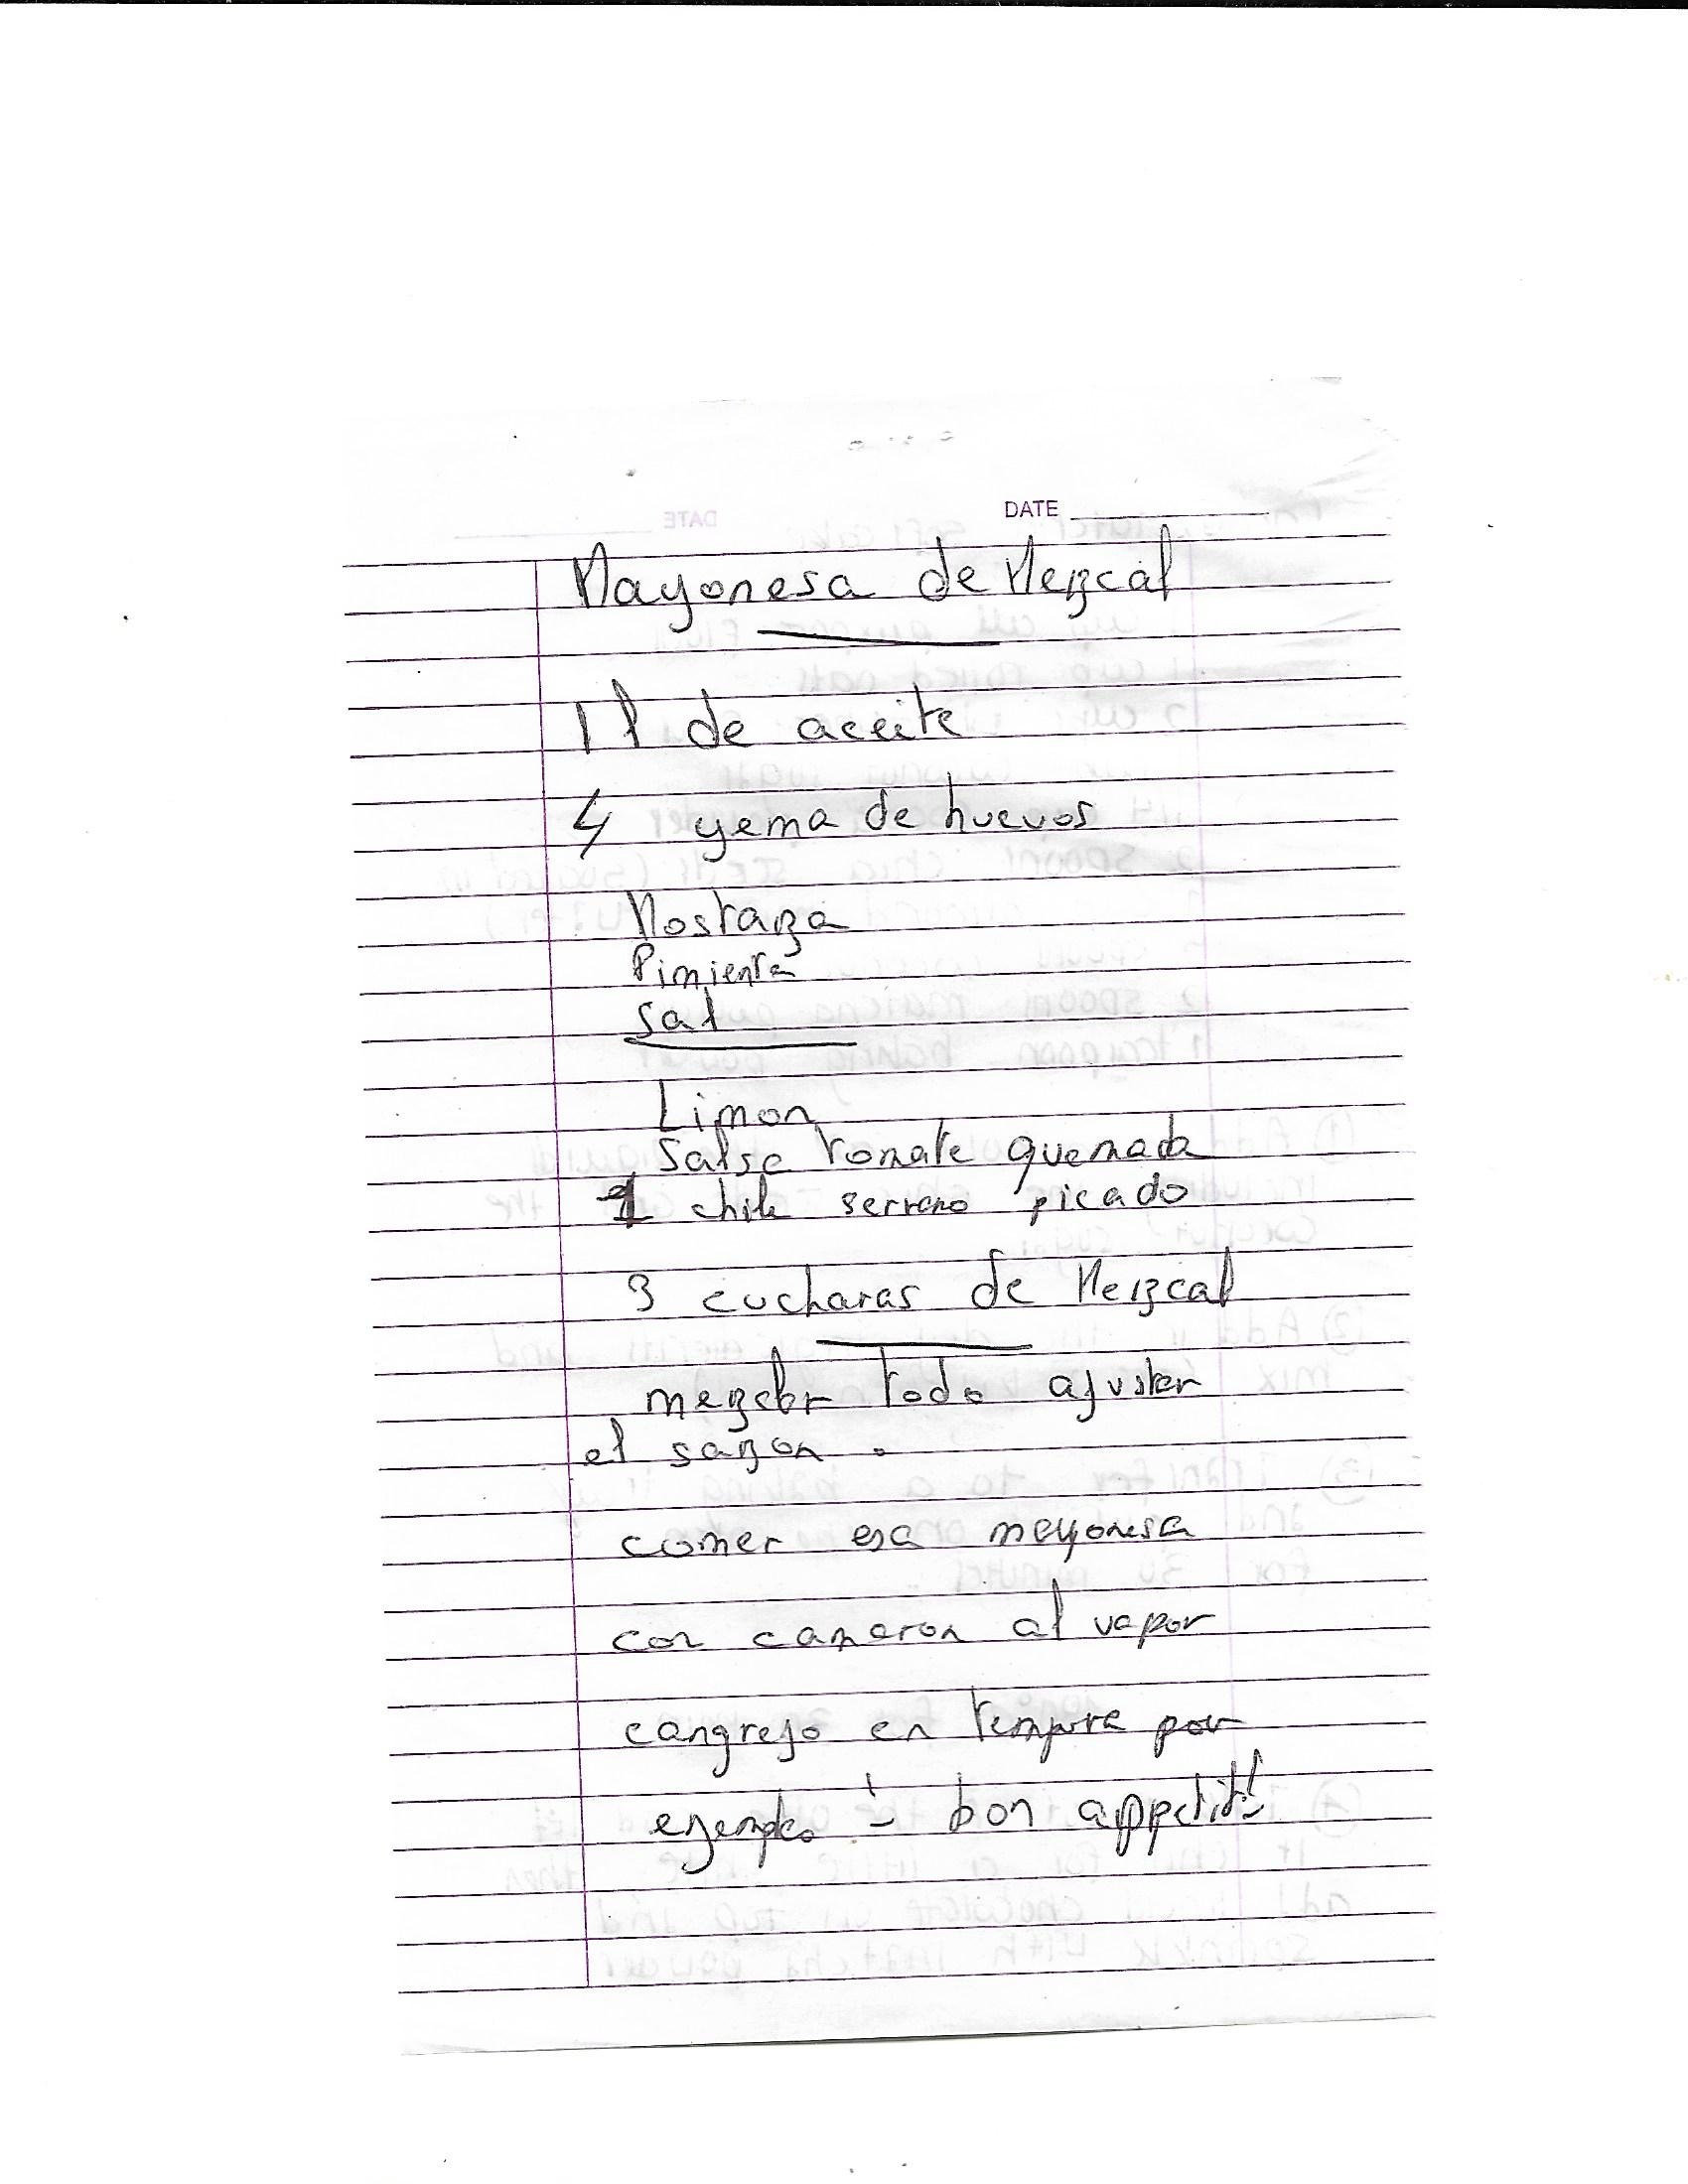 DATE
Mayonesa de Mezcal
1 l de aceite
4 yema de huevos
Mostaza
Pimienta
Sal
Limon
Salsa tomate quemada
1 chile serrano picado
3 cucharas de Mezcal
mezclar todo ajuster
el sazon .
comer esa mayonesa
con camaron al vapor
cangrejo en tempura por
ejemplo ! bon appetit!